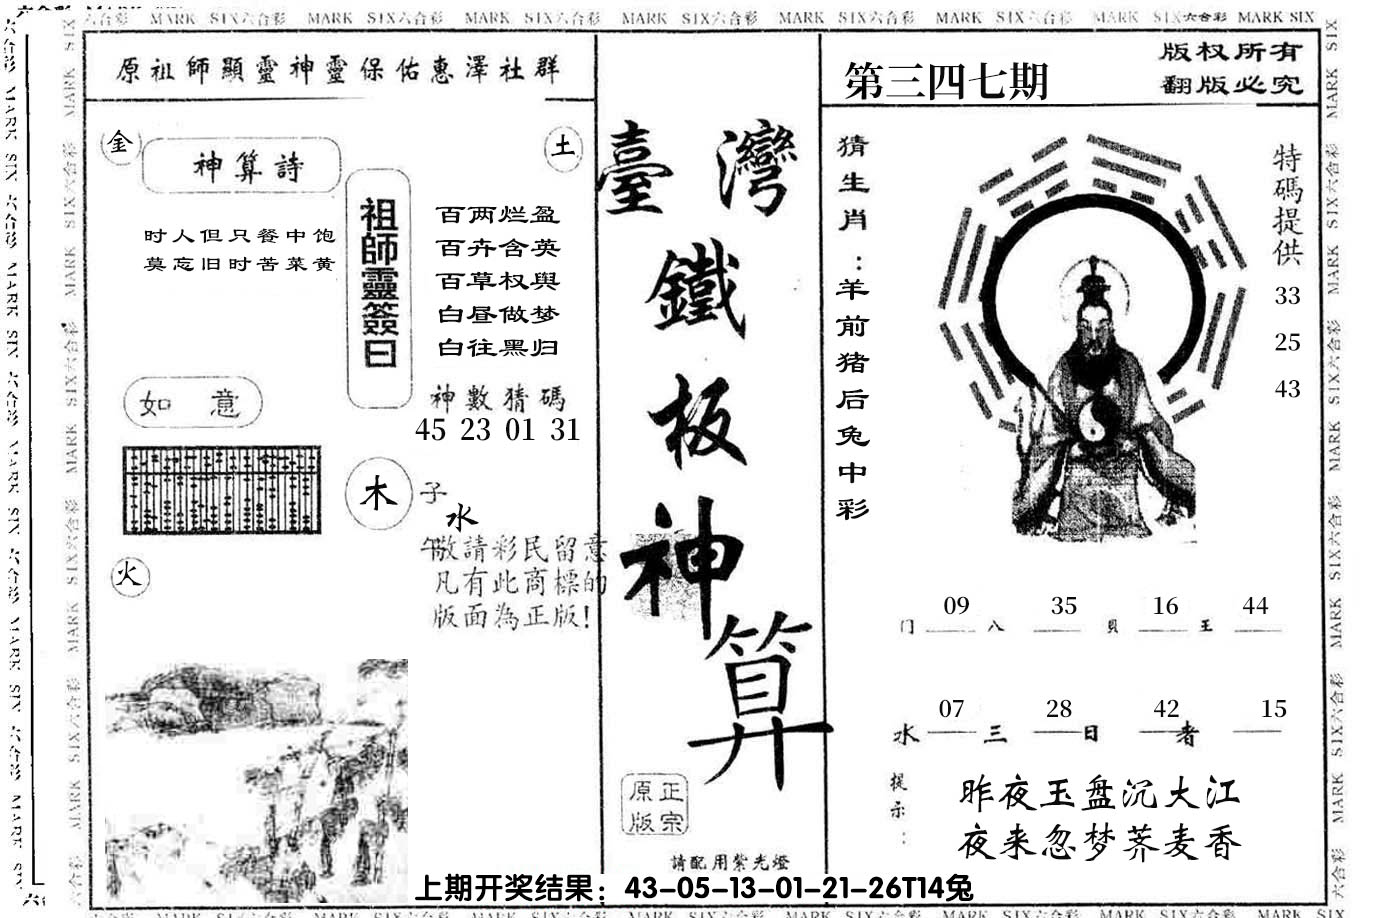 MARK SIX六合彩 MARK SIX六合彩 MARK SIX六合彩 MARK SIX六合彩 MARK SIX六合彩 MARK SIX六合彩 MARK SIX六合彩 MARK SIX
原祖師顯靈神靈保佑惠澤社群
金
土
神算詩
时人但只餐中饱
莫忘旧时苦菜黄
祖師靈簽曰
百两烂盈
百卉含英
百草权舆
白昼做梦
白往黑归
神數猜碼
45 23 01 31
如意
木
子
水
午
火
敬請彩民留意
凡有此商標的
版面為正版!
臺灣
鐵
板
神
算
正宗
原版
請配用紫光燈
第三四七期
版权所有
翻版必究
猜生肖:羊前猪后兔中彩
特碼提供
33
25
43
09 35 16 44
门 八 貝 王
07 28 42 15
水 三 日 者
提示:
昨夜玉盘沉大江
夜来忽梦荞麦香
上期开奖结果：43-05-13-01-21-26T14兔